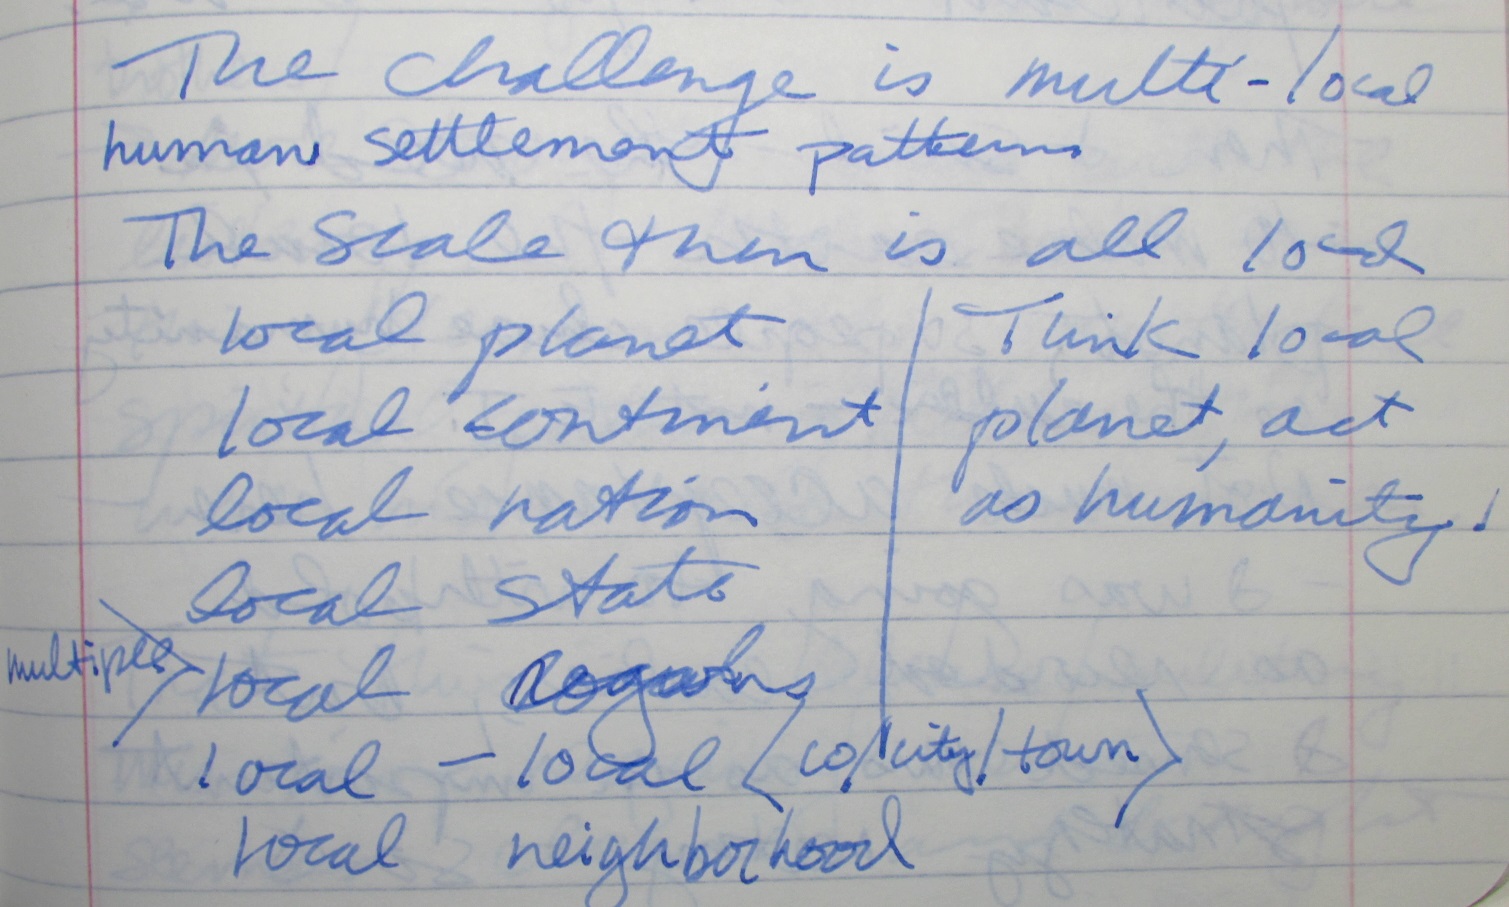 The Challenge is multi-local
human settlement patterns
The Scale then is all local
local planet
local continent
local nation
local state
multiple local regions
local - local <co/city/town>
local neighborhood
Think local
planet, act
as humanity!